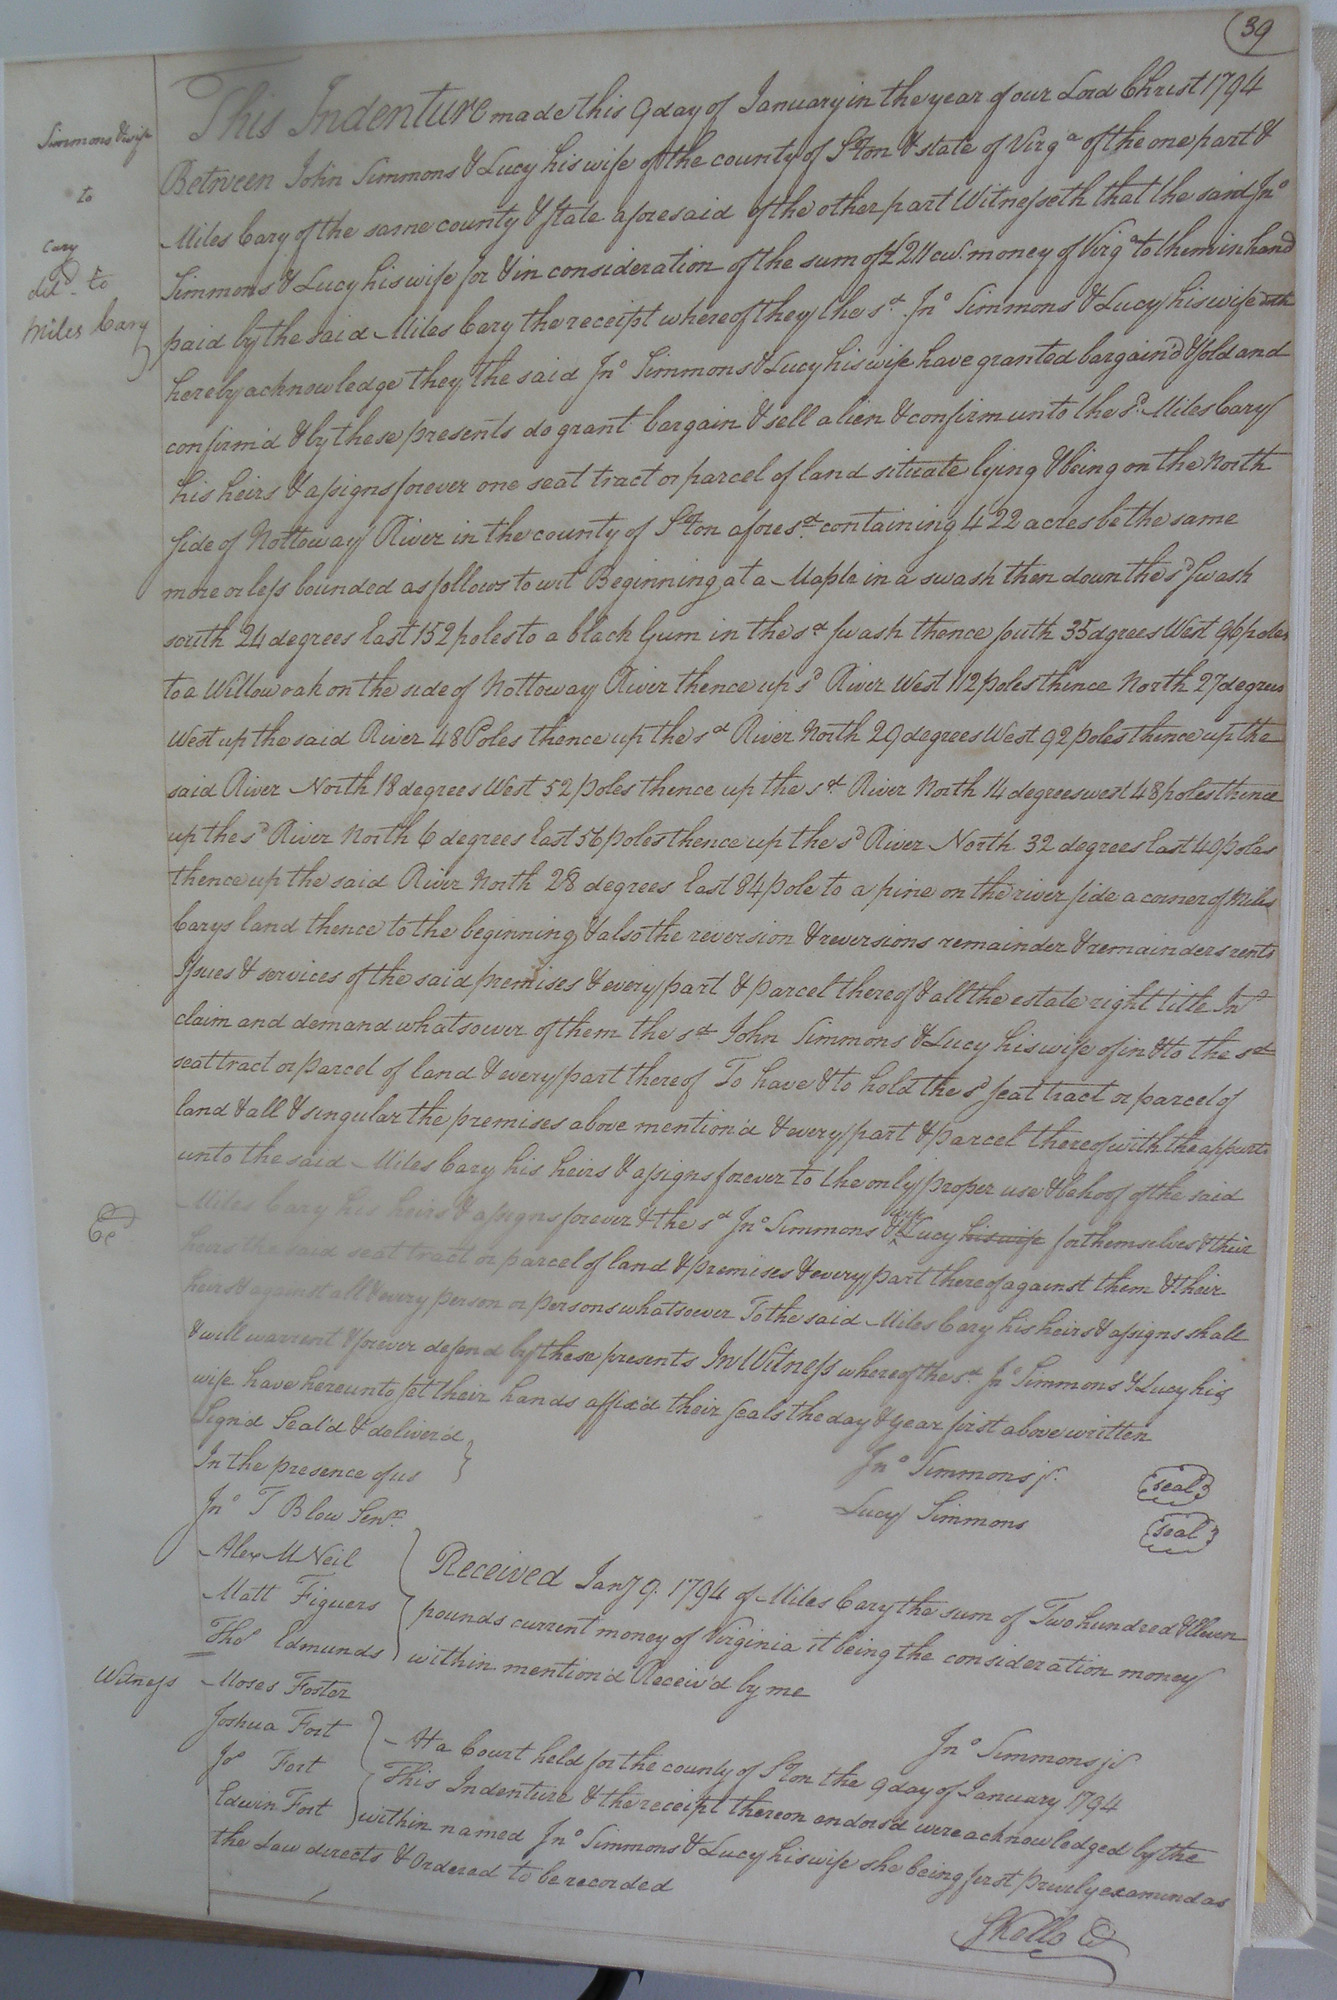 39
Simmons & wife
to
Cary
del.d to
Miles Cary
This Indenture made this 9 day of January in the year of our Lord Christ 1794
Between John Simmons & Lucy his wife of the county of S°ton & state of Virga of the one part &
Miles Cary of the same county & state aforesaid of the other part Witnesseth that the said Jno
Simmons & Lucy his wife for & in consideration of the sum of £211 cur. money of Virga to them in hand
paid by the said Miles Cary the receipt whereof they the sd. Jno Simmons & Lucy his wife
hereby acknowledge they the said Jno Simmons & Lucy his wife have granted bargain'd & sold and
confirm'd & by these presents do grant bargain & sell alien & confirm unto the sd. Miles Cary
his heirs & assigns forever one seat tract or parcel of land situate lying & being on the North
side of Nottoway River in the county of S°ton afores.d containing 422 acres be the same
more or less bounded as follows to wit Beginning at a Maple in a swash then down the sd swash
south 24 degrees East 152 poles to a black Gum in the sd swash thence south 35 dgrees West 96 poles
to a Willow oak on the side of Nottoway River thence up sd River West 112 poles thence North 27 degrees
West up the said River 48 Poles thence up the sd River North 29 degrees West 92 poles thence up the
said River North 18 degrees West 52 poles thence up the sd River North 14 degrees west 48 poles thence
up the sd River North 6 degrees East 56 poles thence up the sd River North 32 degrees East 49 poles
thence up the said River North 28 degrees East 84 pole to a pine on the river side a corner of Miles
Carys land thence to the beginning & also the reversion & reversions remainder & remainders rents
Issues & services of the said premises & every part & parcel thereof & all the estate right title Int
claim and demand whatsoever of them the sd John Simmons & Lucy his wife of in & to the sd
seat tract or parcel of land & every part thereof To have & to hold the sd seat tract or parcel of
land & all & singular the premises above mention'd & every part & parcel thereof with the appurts
unto the said Miles Cary his heirs & assigns forever to the only proper use & behoof of the said
Miles Cary his heirs & assigns forever & the sd Jno Simmons & wife Lucy his wife for themselves & their
heirs the said seat tract or parcel of land & premises & every part thereof against them & their
heirs & against all & every person or persons whatsoever To the said Miles Cary his heirs & assigns shall
& will warrent & forever defend by these presents In Witness whereof the sd. Jno Simmons & Lucy his
wife have hereunto set their hands affix'd their seals the day & year first above written
Sign'd Seal'd & deliver'd
In the presence of us
Jno Simmons jr. seal
Lucy Simmons seal
Jno T Blow Senr.
Alex McNeil
Matt Figuers
Thos Edmunds
Received Jany 9. 1794 of Miles Cary the sum of Two hundred & Eleven
pounds current money of Virginia it being the consideration money
within mention'd Receiv'd by me
Jno Simmons jr
Witness
Moses Foster
Joshua Fort
Jos Fort
Edwin Fort
At a Court held for the county of S°ton the 9 day of January 1794
This Indenture & the receipt thereon endors'd were acknowledged by the
within named Jno Simmons & Lucy his wife she being first privily examined as
the Law directs & Ordered to be recorded